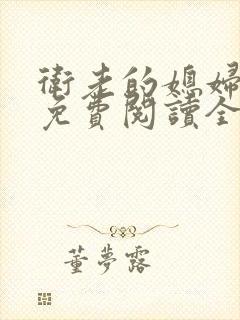 衛走的媳婦
免費閱讀全
董夢露